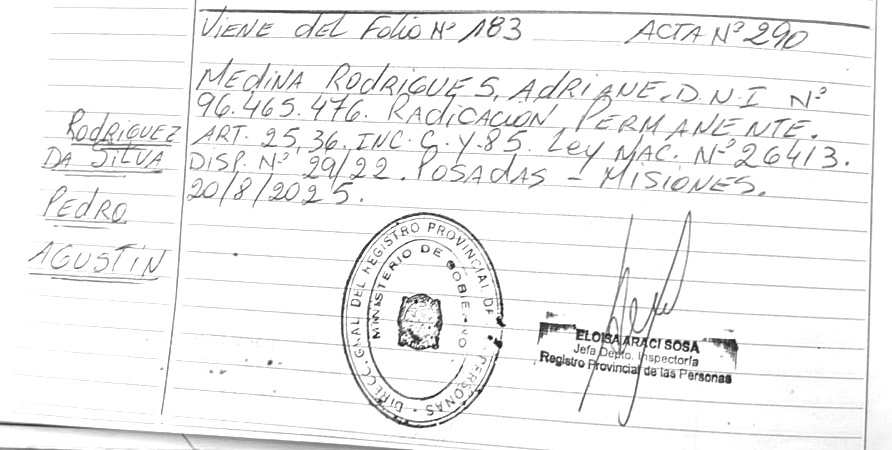 VIENE del Folio Nº 183 ACTA Nº 290
RodRiGUEZ
DA SilVA
PEdRO
AGUSTiN
MEdiNA ROdRiGUES, AdRiANE. D.N.I Nº
96.465.476. RAdiCACION PERMANENTE.
ART. 25,36. INC. C. Y.85. Ley NAC. Nº 26413.
DISP. Nº 29/22. POSADAS - MISIONES.
20/8/2025.
DIRECC. GRAL DEL REGISTRO PROVINCIAL DE PERSONAS
MINISTERIO DE GOBIERNO
ELOISA ARACI SOSA
Jefa Depto. Inspectoría
Registro Provincial de las Personas